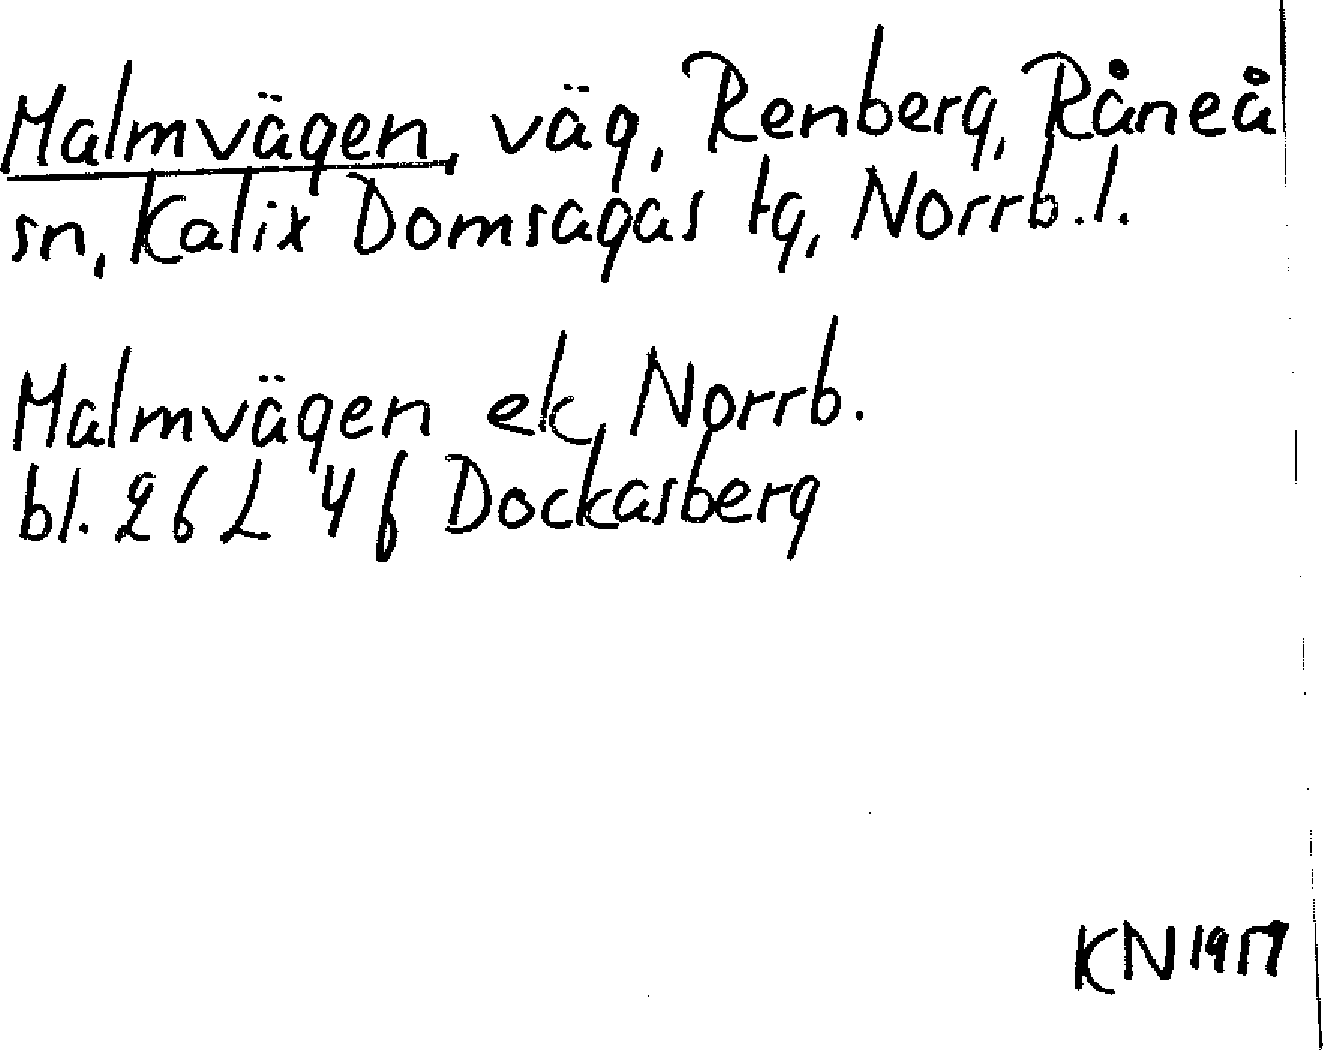 Malmvägen, väg, Renberg, Råneå
sn, Kalix Domsagas tg, Norrb.l.
Malmvägen ek, Norrb.
bl. 26 L 4 f Dockasberg
KN